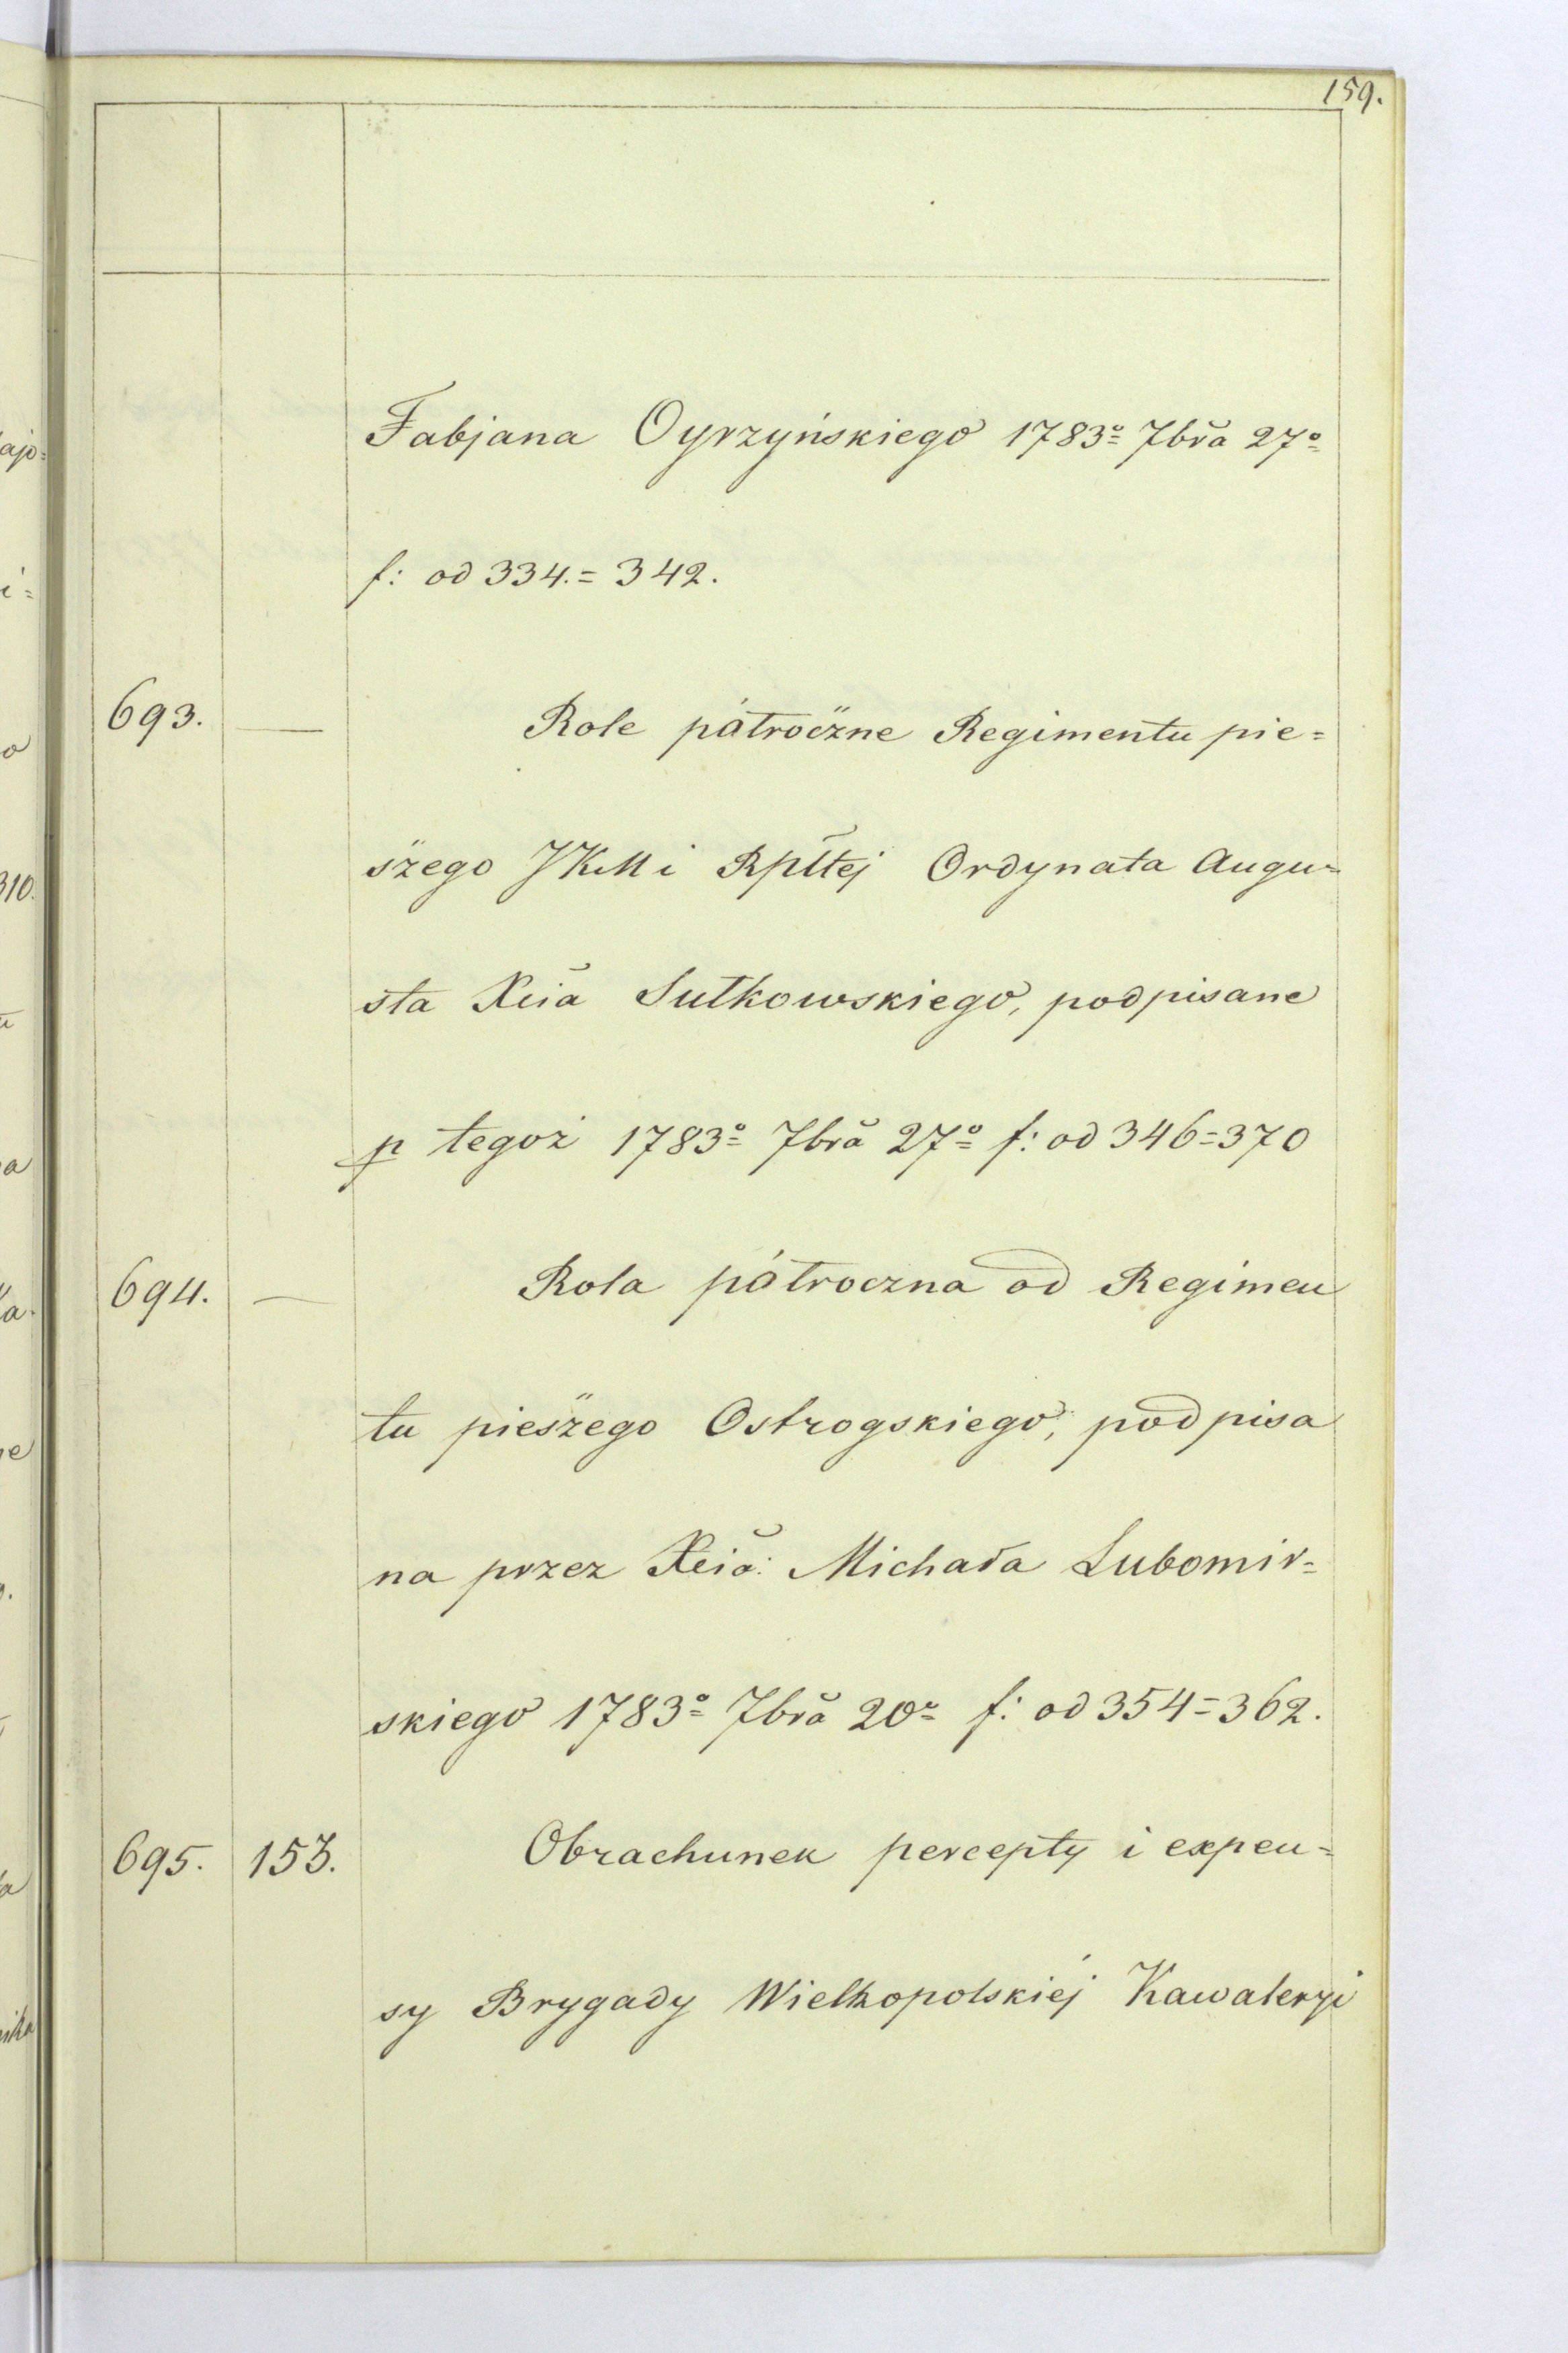 159.
Fabjana Oyrzyńskiego 1783o= 7bra 27o=
f: od 334.= 342.
693. — Role pótroczne Regimentu pie=
szego JKM i Rpltej Ordynata Augu=
sta Xcia Sułkowskiego, podpisane
p tegoż 1783o= 7bra 27o= f: od 346=370
694. — Rola pótroczna od Regimen
tu pieszego Ostrogskiego, podpisa
na przez Xcia: Michała Lubomir=
skiego 1783o= 7bra 20o= f: od 354=362.
695. 153. Obrachunek percepty i expen=
sy Brygady Wielkopolskiéj Kawaleryi